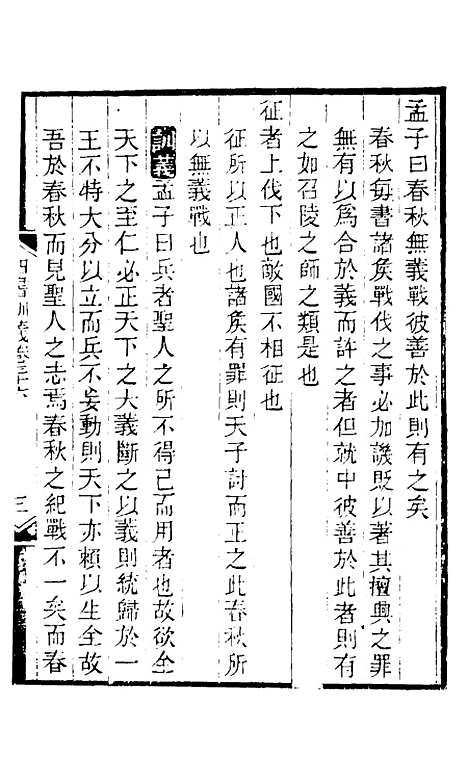 孟子曰春秋無義戰彼善於此則有之矣
春秋每書諸矦戰伐之事必加譏貶以著其擅興之罪
無有以爲合於義而許之者但就中彼善於此者則有
之如召陵之師之類是也
征者上伐下也敵國不相征也
征所以正人也諸矦有罪則天子討而正之此春秋所
以無義戰也
訓義孟子曰兵者聖人之所不得已而用者也故欲全
天下之至仁必正天下之大義斷之以義則統歸於一
王不特大分以立而兵不妄動則天下亦賴以生全故
吾於春秋而見聖人之志焉春秋之紀戰不一矣而春
四書訓義卷三十六
三